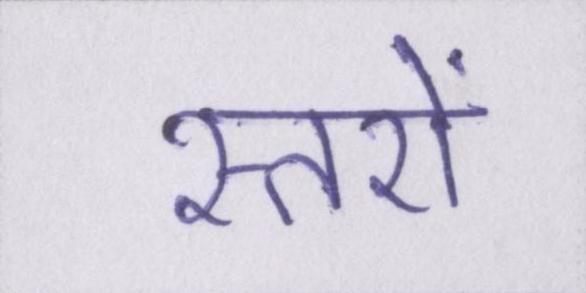 स्तरों